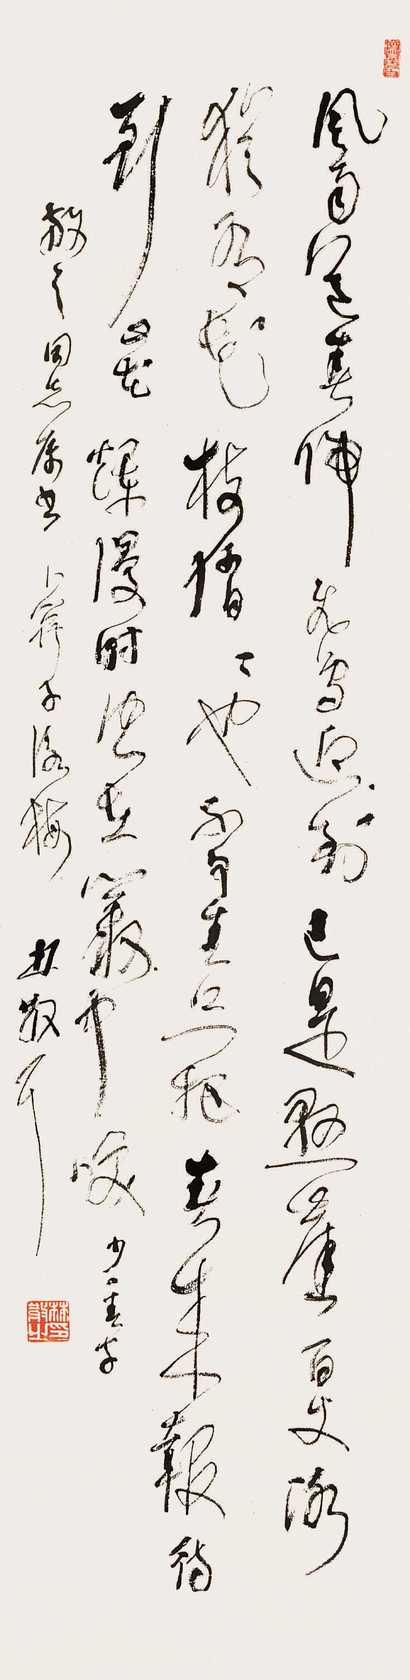 風雨送春歸飛雪迎到已是懸崖百丈冰
猶有花枝俏々也不爭春只把春來報待
到山花爛漫時她在叢中笑 少一春字
之同志屬書 卜算子詠梅 林散耳
林散之印